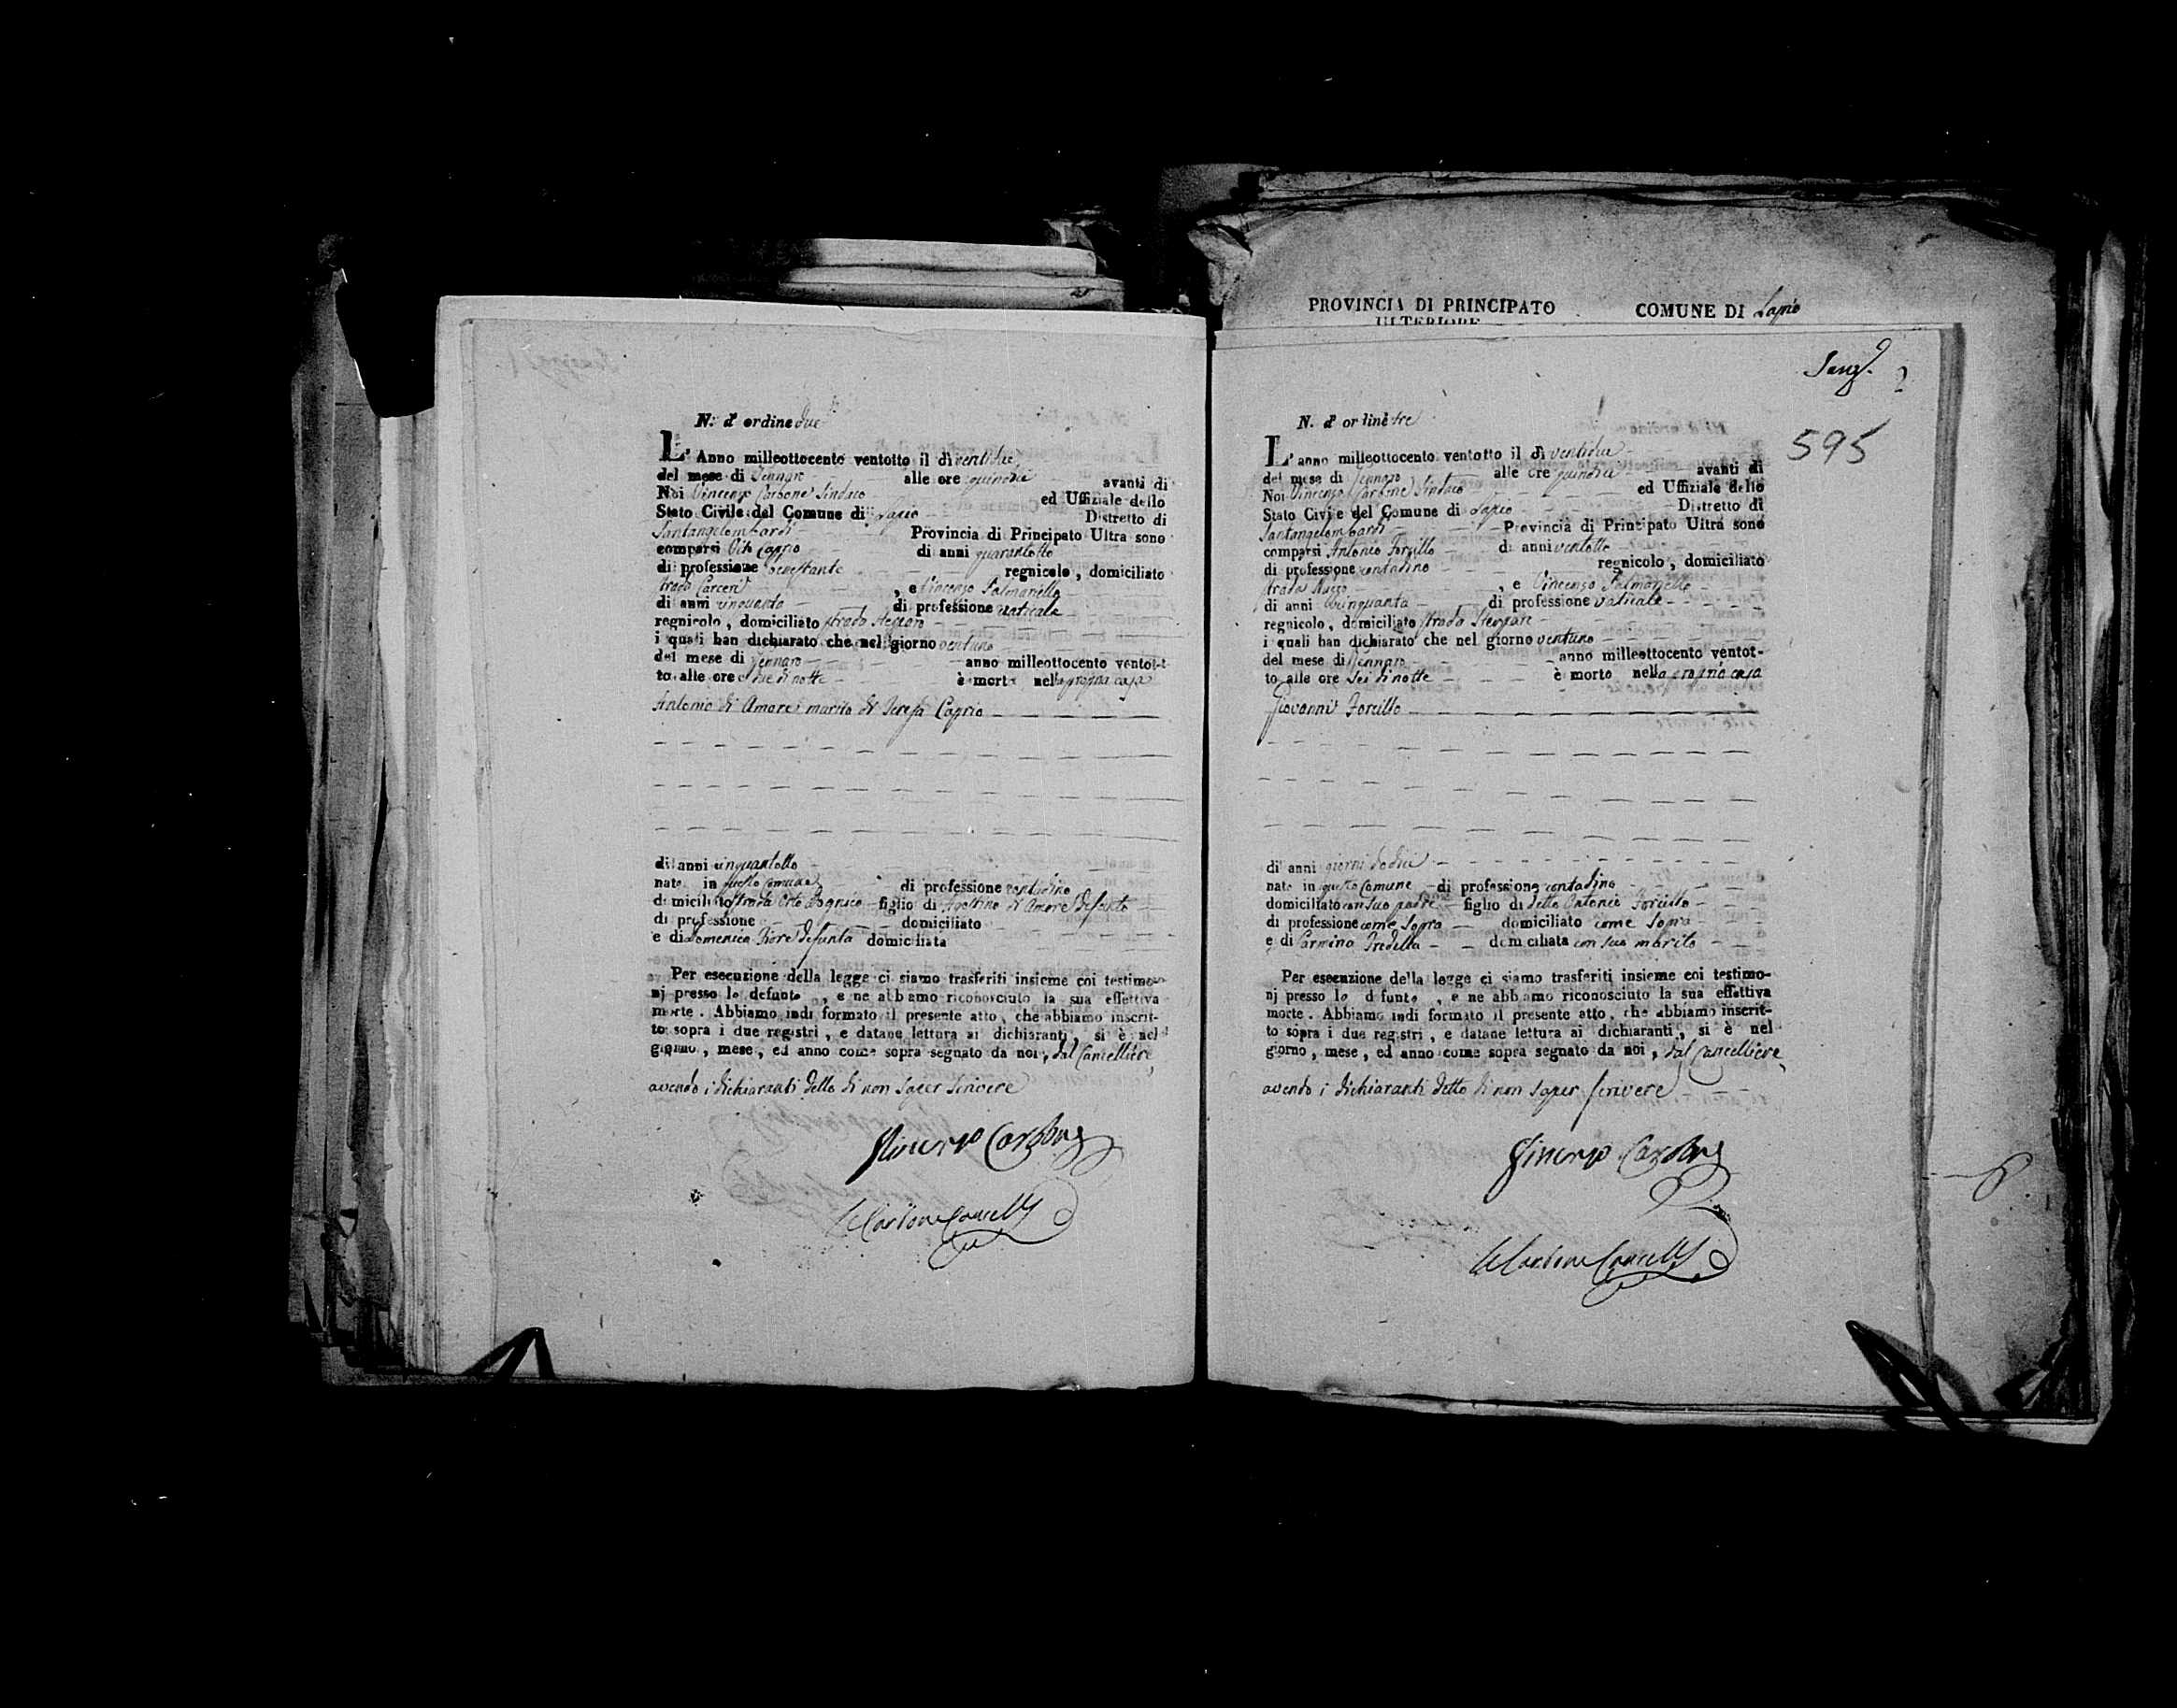 N. d' ordine due
L' Anno milleottocento ventotto il dì ventidue
del mese di Gennaro alle ore quindici avanti di
Noi Vincenzo Carbone Sindaco ed Uffiziale dello
Stato Civile del Comune di Lapio Distretto di
Santangelombardi Provincia di Principato Ultra sono
comparsi Vito Caprio di anni quarantotto
di professione benestante regnicolo, domiciliato
strada Carceri, e Vincenzo Palmariello
di anni cinquanta di professione vaticale
regnicolo, domiciliato strada
i quali han dichiarato che nel giorno ventuno
del mese di Gennaro anno milleottocento ventot-
to alle ore due di notte è morto nella propria casa
Antonio di Amore marito di Teresa Caprio
di anni cinquantotto
nato in questo Comune di professione contadino
domiciliato strada Orto figlio di di Amore defunto
di professione domiciliato
e di Domenica Fiore defunta domiciliata
Per esecuzione della legge ci siamo trasferiti insieme coi testimo-
nj presso lo defunto, e ne abbiamo riconosciuto la sua effettiva
morte. Abbiamo indi formato il presente atto, che abbiamo inscrit-
to sopra i due registri, e datane lettura ai dichiaranti, si è nel
giorno, mese, ed anno come sopra segnato da noi, dal Cancelliere,
avendo i dichiaranti detto di non saper scrivere
Vincenzo Carbone
Carbone Cancell
PROVINCIA DI PRINCIPATO COMUNE DI Lapio
ULTERIORE
595
N. d' ordine tre
L' anno milleottocento ventotto il dì ventidue
del mese di Gennaro alle ore quindici avanti di
Noi Vincenzo Carbone Sindaco ed Uffiziale dello
Stato Civile del Comune di Lapio Distretto di
Santangelombardi Provincia di Principato Ultra sono
comparsi Antonio Forcillo di anni ventotto
di professione contadino regnicolo, domiciliato
strada, e Vincenzo Palmariello
di anni cinquanta di professione vaticale
regnicolo, domiciliato strada
i quali han dichiarato che nel giorno ventuno
del mese di Gennaro anno milleottocento ventot-
to alle ore sei di notte è morto nella propria casa
Giovanni Forcillo
di anni giorni dodici
nato in questo Comune di professione contadino
domiciliato con suo padre figlio di detto Antonio Forcillo
di professione come sopra domiciliato come sopra
e di Carmina domiciliata con suo marito
Per esecuzione della legge ci siamo trasferiti insieme coi testimo-
nj presso lo defunto, e ne abbiamo riconosciuto la sua effettiva
morte. Abbiamo indi formato il presente atto, che abbiamo inscrit-
to sopra i due registri, e datane lettura ai dichiaranti, si è nel
giorno, mese, ed anno come sopra segnato da noi, dal Cancelliere,
avendo i dichiaranti detto di non saper scrivere
Vincenzo Carbone
Carbone Cancell